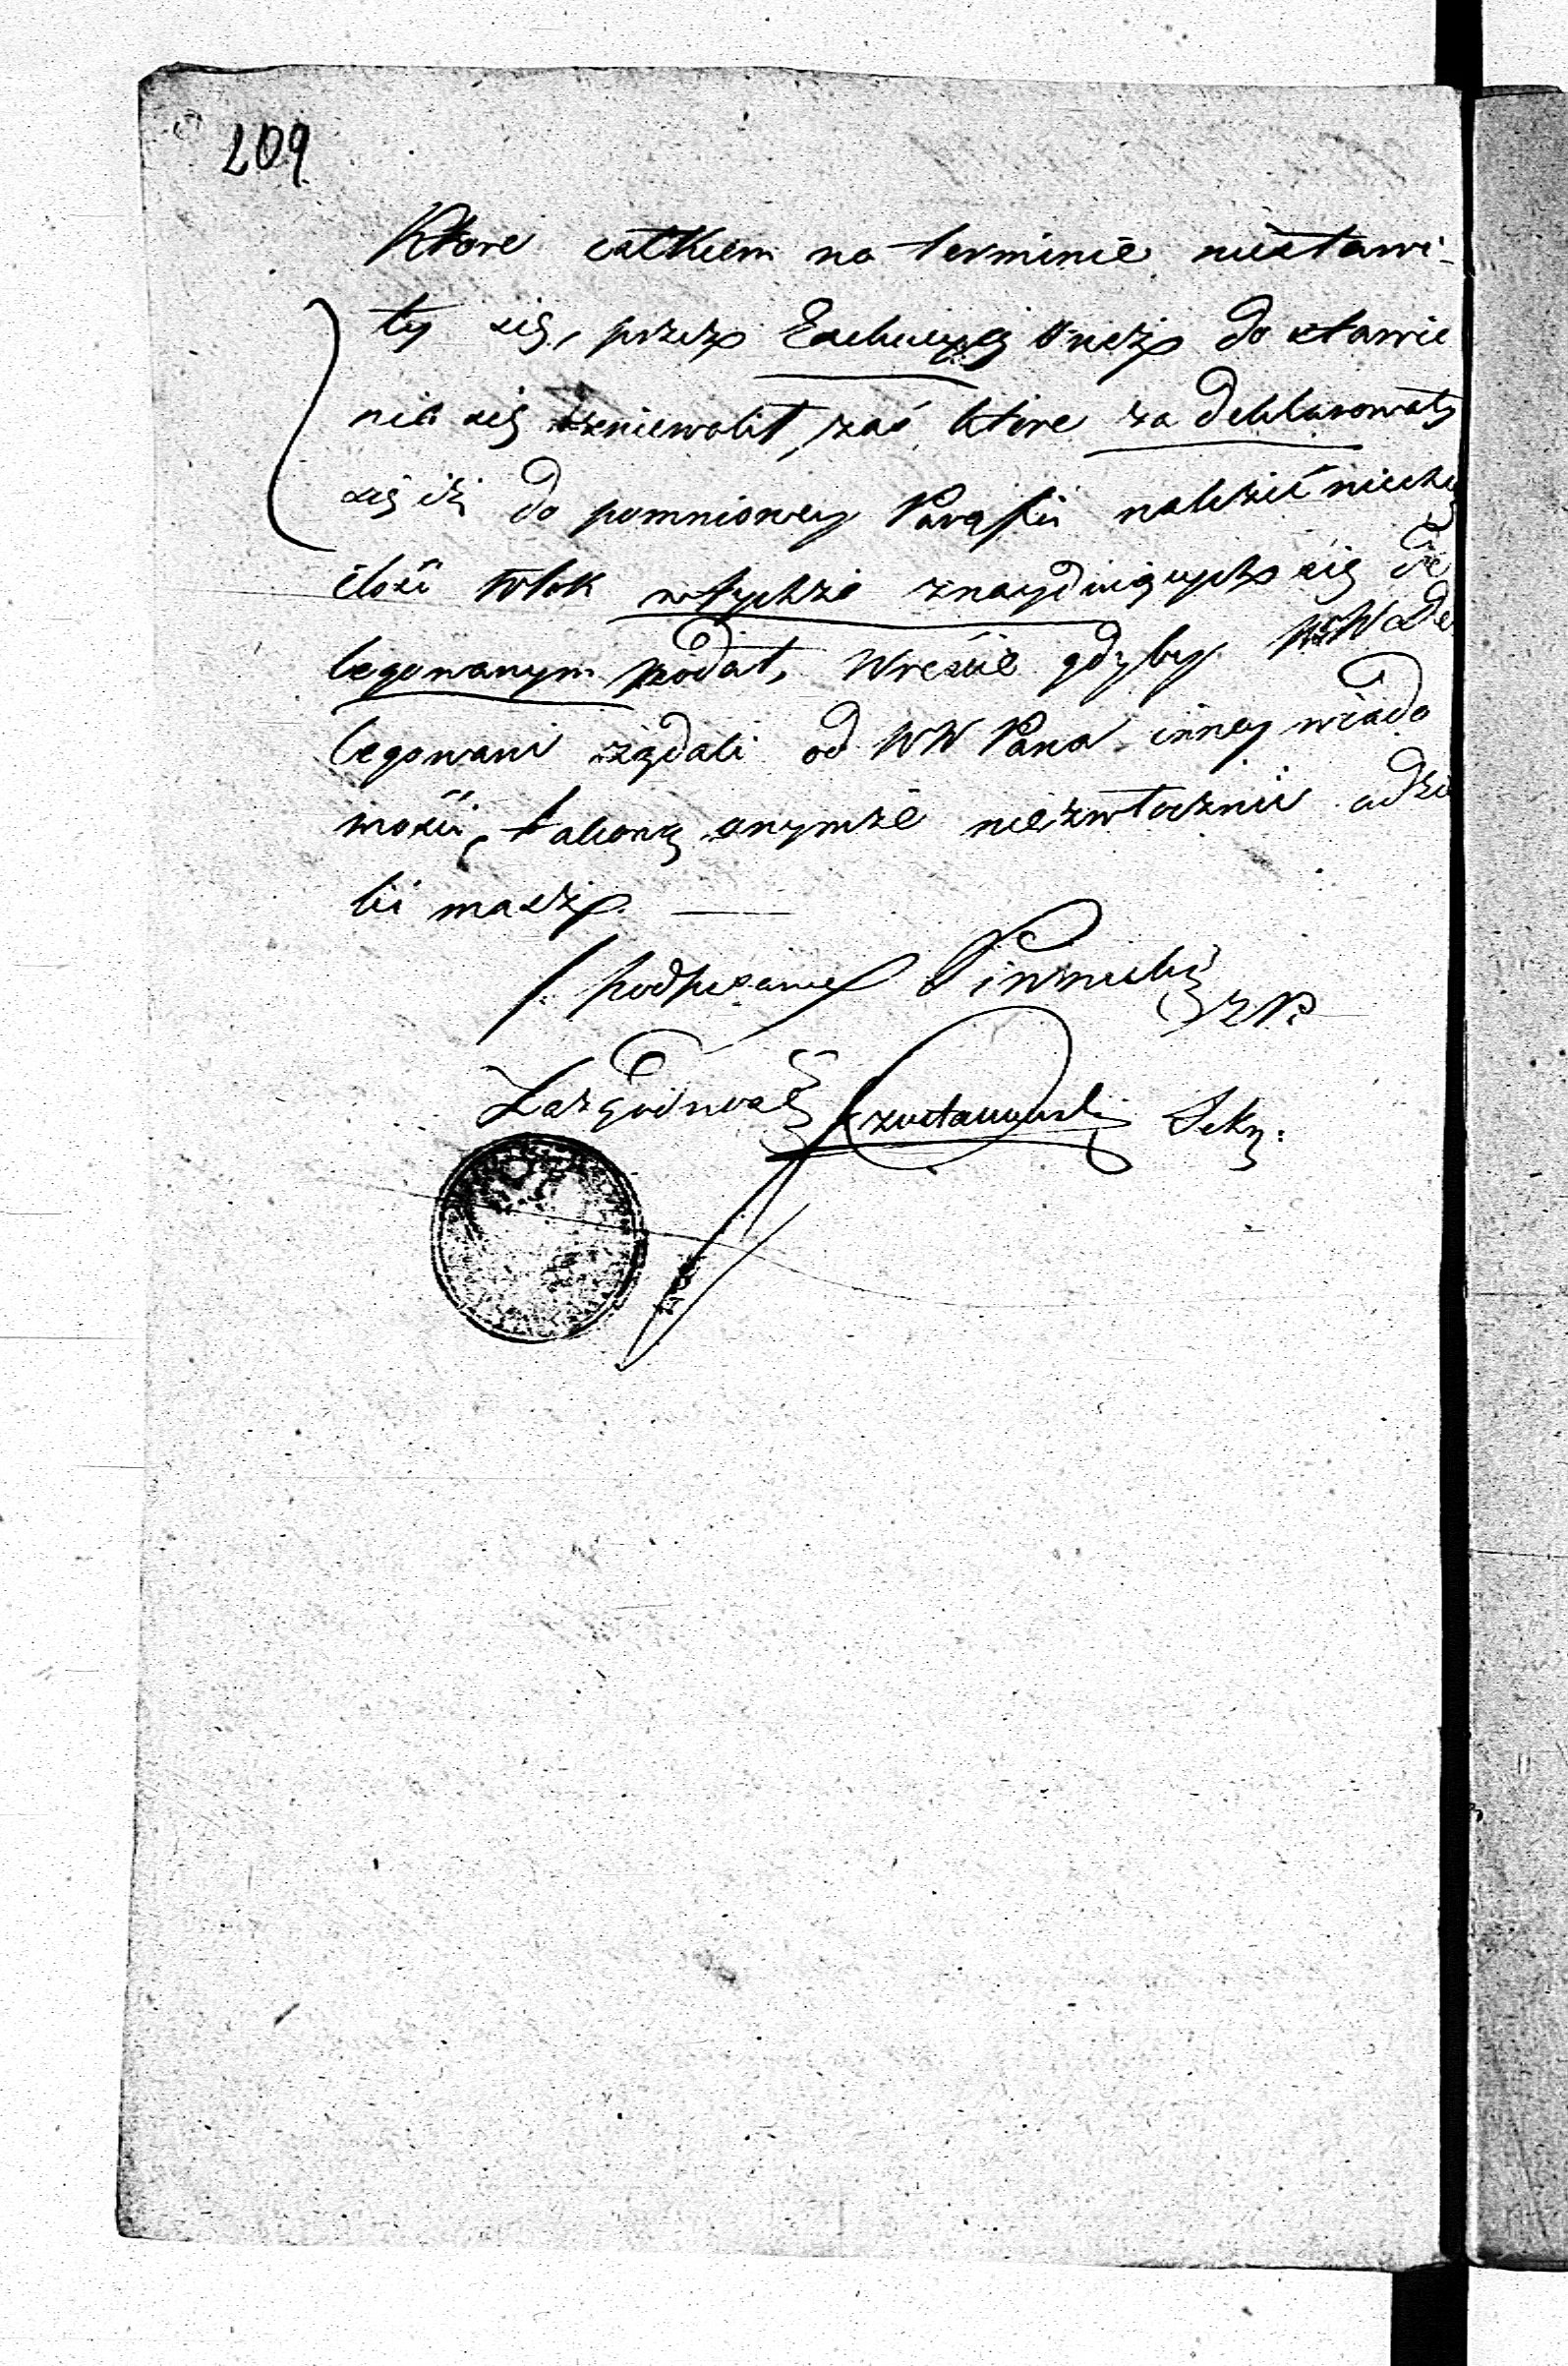 209
Ktore całkiem na terminie niestawi-
ły się, przez Exekucyą onez do stawie
nia się zniewolił, zaś które zadeklarowały
się iż do pomnioney Parafii należeć niechcą
ilość włok wtychże znayduiących się De
legowanym podał, Wreście gdyby WW De
legowani żądali od WW Pana inney wiado
mości, takową onymże niezwłocznie udzie
lić masz.
/: podpisany
Za zgodność Sekr: